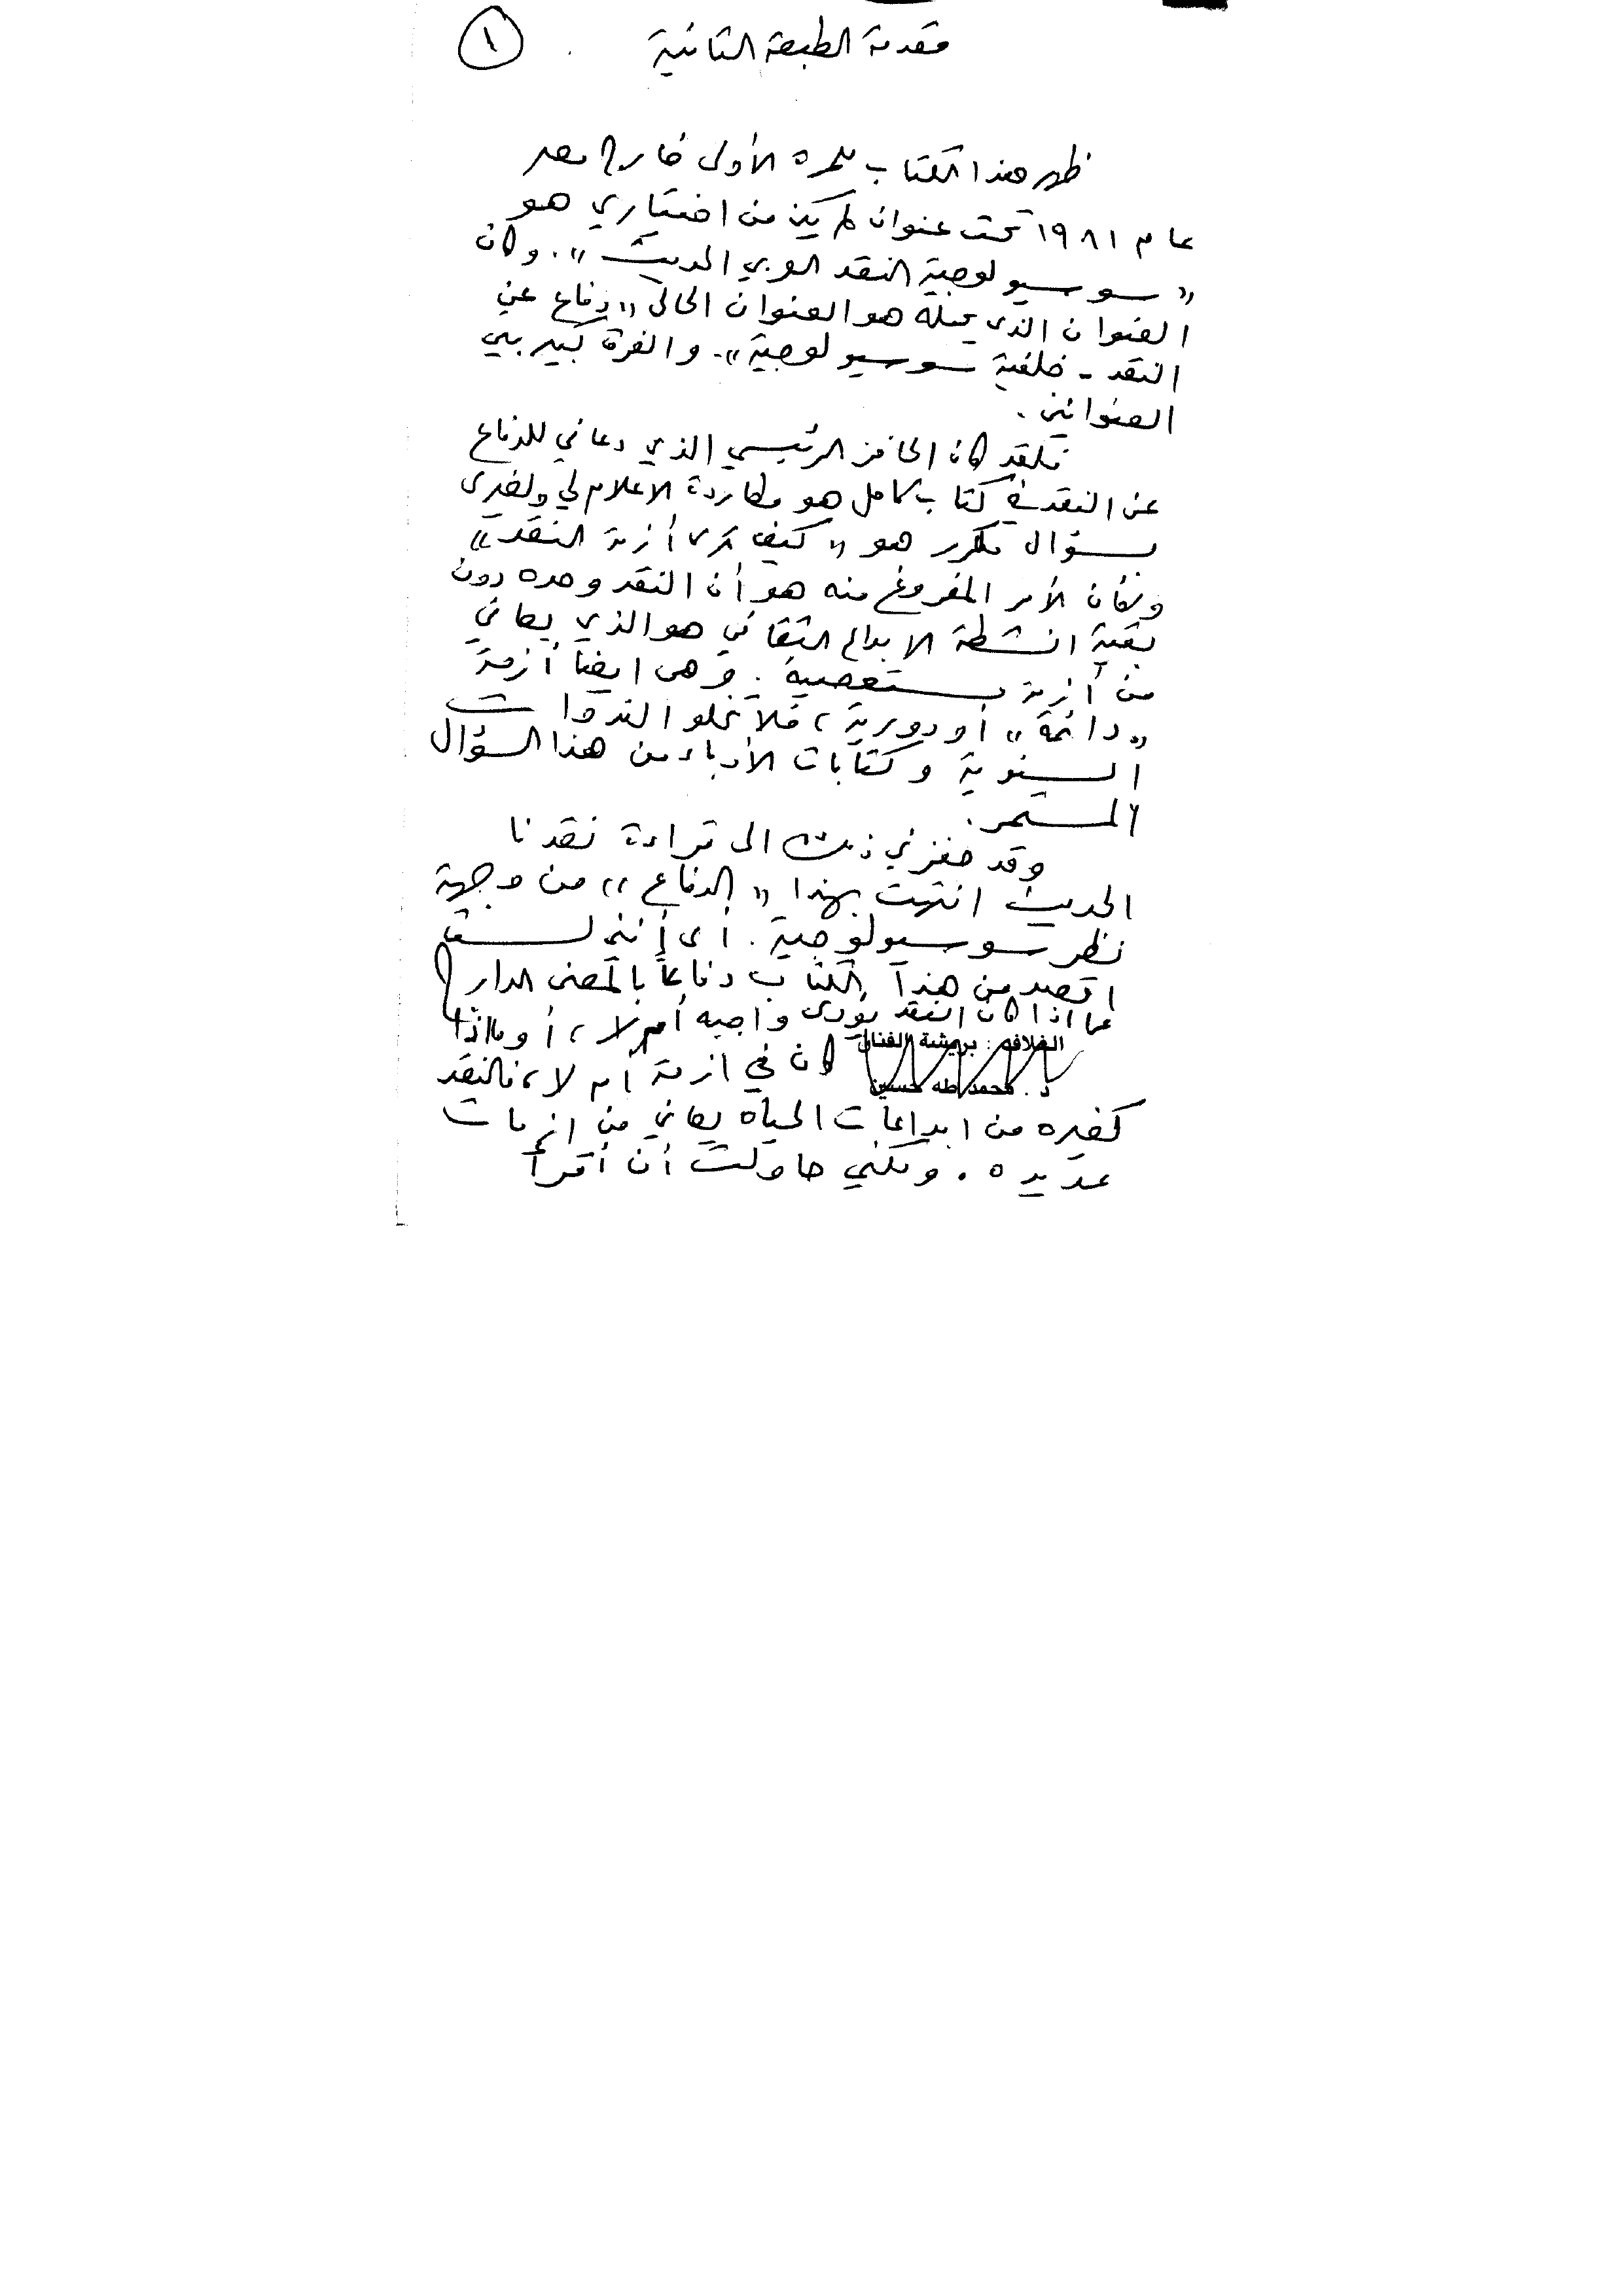 مقدمة الطبعة الثانية
١
ظهر هذا الكتاب للمرة الأولى خارج مصر
عام ١٩٨١ تحت عنوان لم يكن من اختياري هو
«سوسيولوجية النقد العربي الحديث». وكان
العنوان الذي يحمله هو العنوان الحالي «دفاع عن
النقد - خلفية سوسيولوجية». والفرق كبير بين
العنوانين.
فلقد كان الحافز الرئيسي الذي دعاني للدفاع
عن النقد في كتاب كامل هو مطاردة الاعلام لي ولغيري
بسؤال مكرر هو «كيف ترى أزمة النقد»
وكأن الأمر المفروغ منه هو أن النقد وحده دون
بقية انشطة الابداع الثقافي هو الذي يعاني
من أزمة مستعصية. وهى ايضا أزمة
«دائمة» أو دورية، فلا تخلو الندوات
السنوية وكتابات الأدباء من هذا السؤال
المستمر.
وقد حفزني ذلك الى قراءة نقدنا
الحديث انتهت بهذا «الدفاع» من وجهة
نظر سوسيولوجية. أى أننى لست
اقصد من هذا الكتاب دفاعاً بالمعنى الدارج
عما اذا كان النقد يؤدى واجبه أم لا، أو ما اذا
الغلاف : بريشة الفنان
كان في ازمة أم لا، فالنقد
د . محمد طه حسين
كغيره من ابداعات الحياة يعاني من ازمات
عديده. ولكني حاولت أن أقرأ